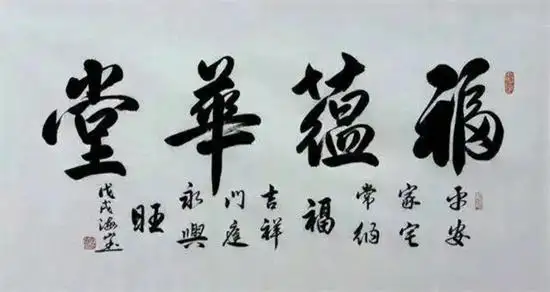 福蘊華堂
平安
家宅
常納
福
吉祥
门庭
永興
旺
戊戌海